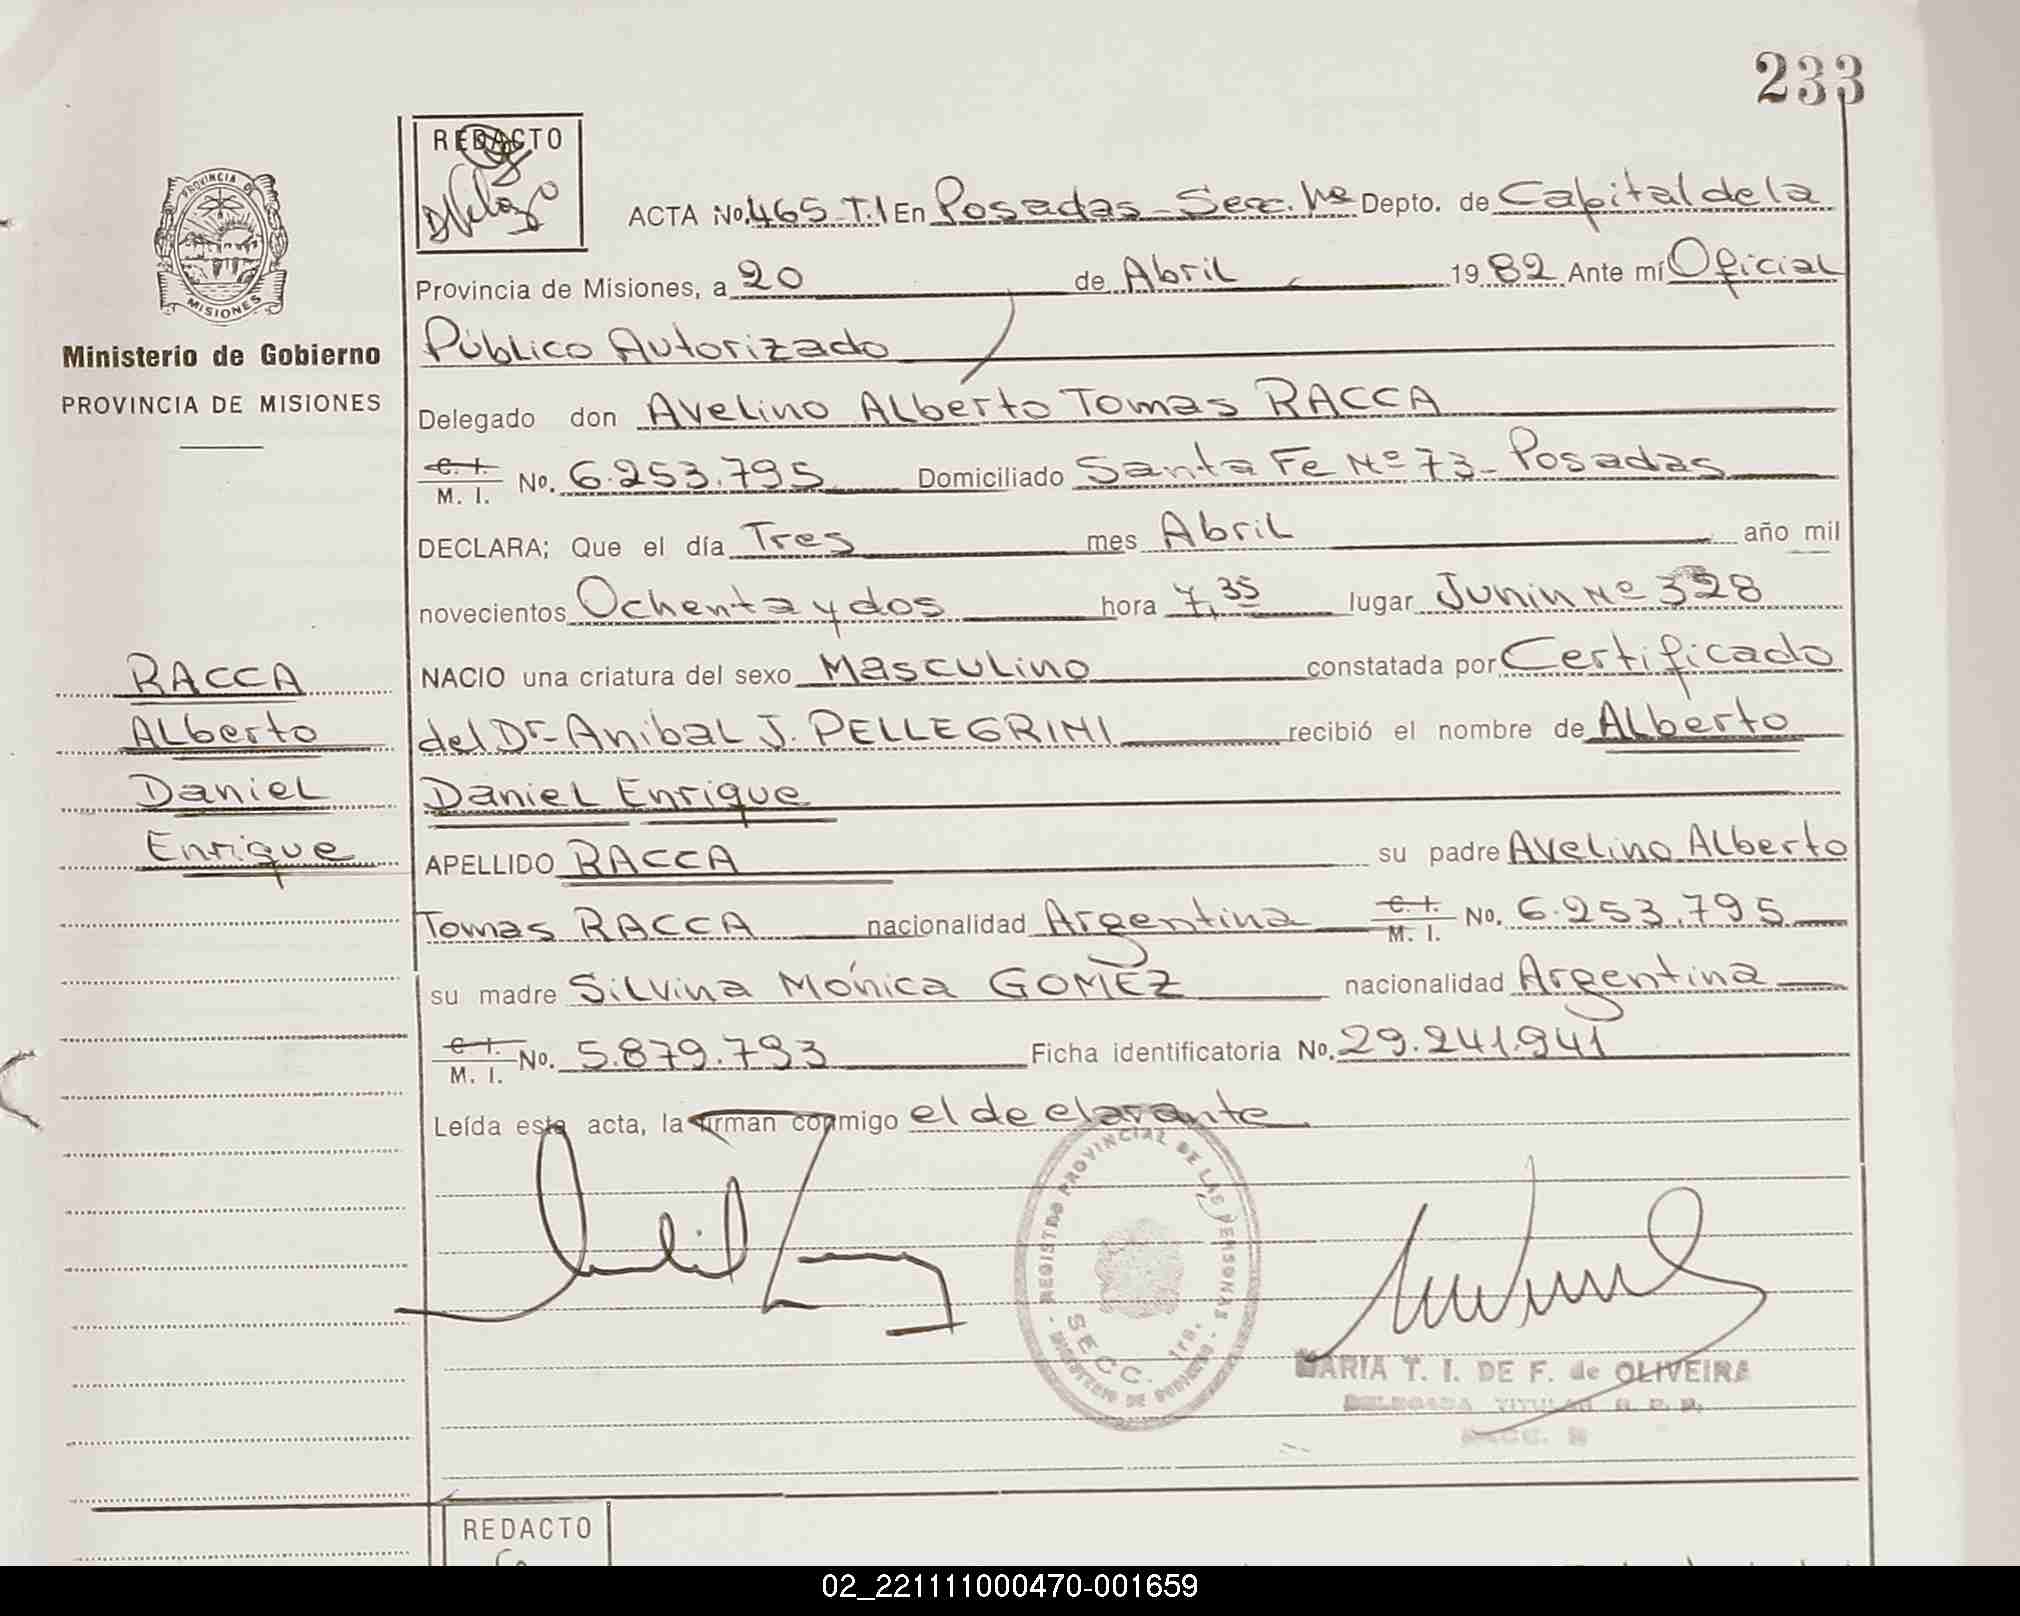 233
REDACTO
ACTA No. 465 T.I En Posadas - Secc. 1ra Depto. de Capital de la
Provincia de Misiones, a 20 de Abril 1982 Ante mí Oficial
Público Autorizado
Delegado don Avelino Alberto Tomas RACCA
C. I. M. I. No. 6.253.795 Domiciliado Santa Fe Nº 73 - Posadas
DECLARA; Que el día Tres mes Abril año mil
novecientos Ochenta y dos hora 7,35 lugar Junin Nº 328
NACIO una criatura del sexo Masculino constatada por Certificado
del Dr. Anibal J. PELLEGRINI recibió el nombre de Alberto
Daniel Enrique
APELLIDO RACCA su padre Avelino Alberto
Tomas RACCA nacionalidad Argentina C. I. M. I. No. 6.253.795
su madre Silvina Mónica GOMEZ nacionalidad Argentina
C. I. M. I. No. 5.879.793 Ficha identificatoria No. 29.241.941
Leída esta acta, la firman conmigo el declarante
PROVINCIA DE
MISIONES
Ministerio de Gobierno
PROVINCIA DE MISIONES
RACCA
Alberto
Daniel
Enrique
REGISTRO PROVINCIAL DE LAS PERSONAS
- MINISTERIO DE GOBIERNO -
SECC. 1ra.
MARIA T. I. DE F. de OLIVEIRA
DELEGADA TITULAR R. P. P.
SECC.
REDACTO
02_221111000470-001659